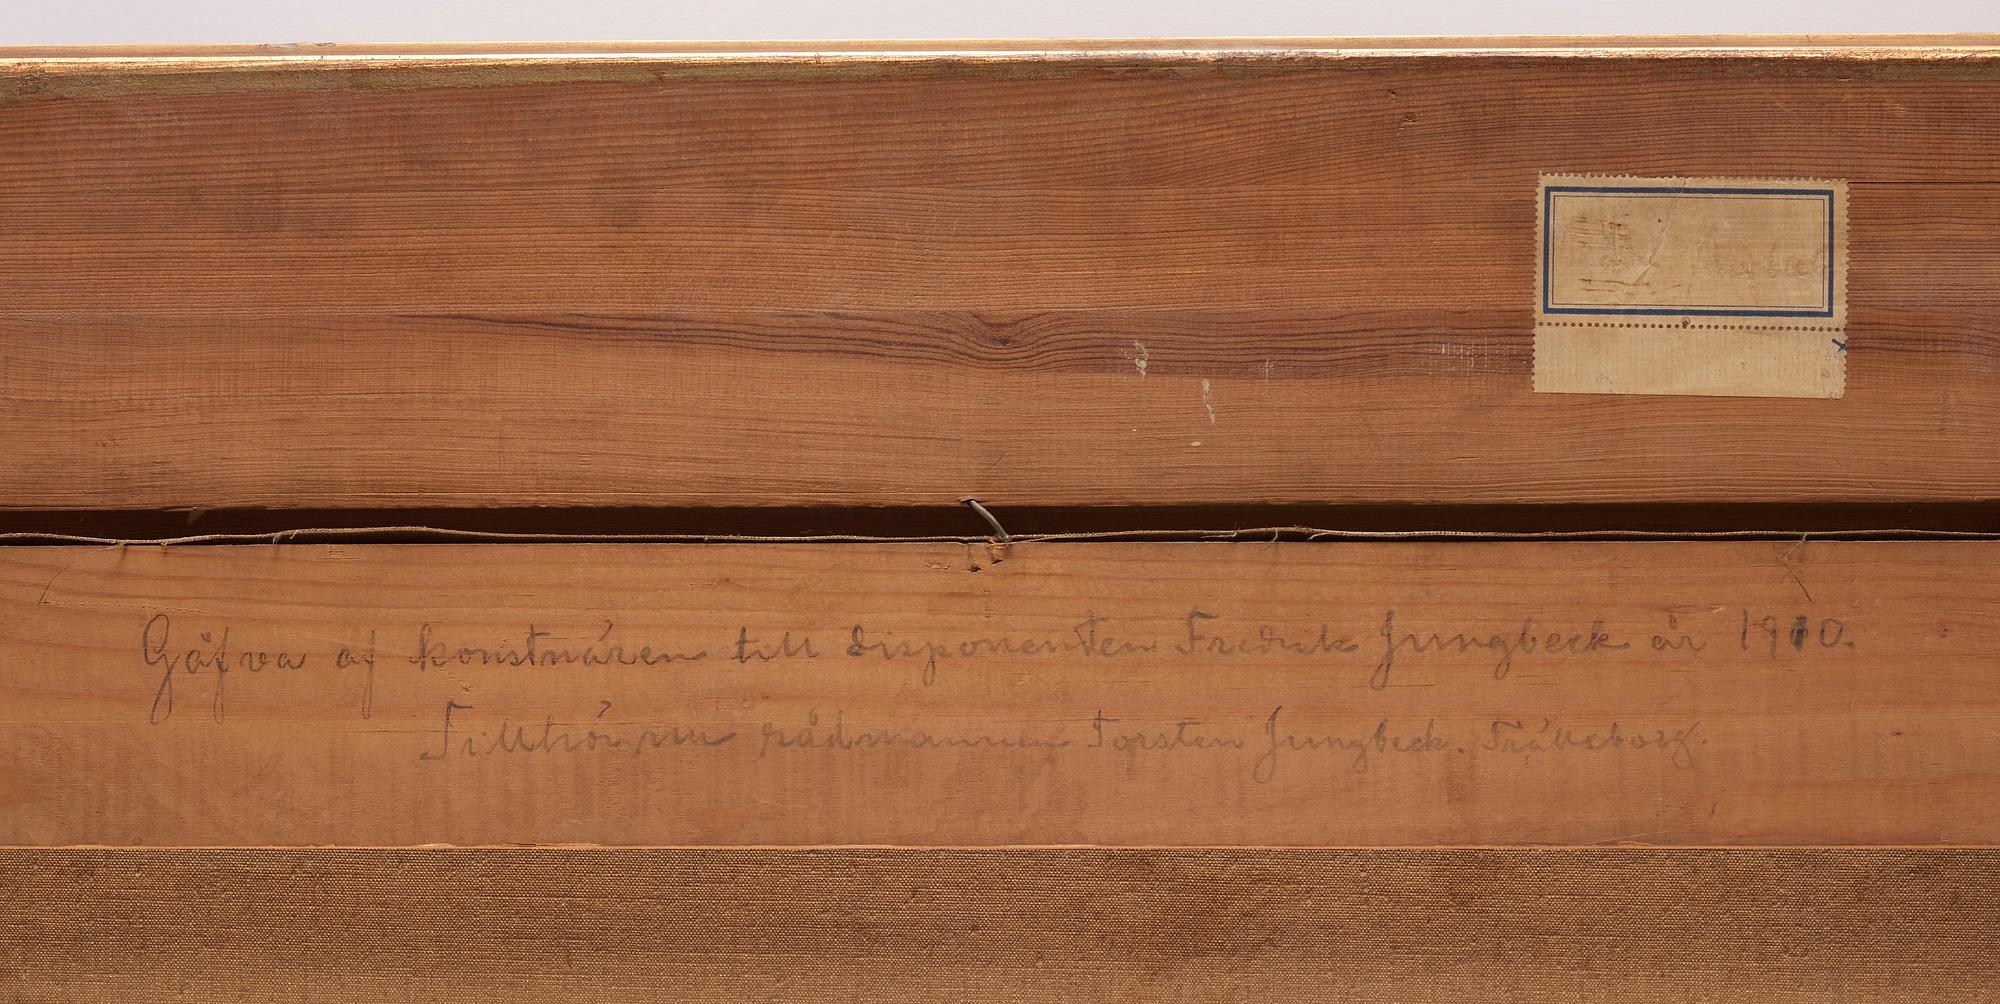 Gåfva af konstnären till disponenten Fredrik Jungbeck år 1910.
Tillhör nu rådmannen Torsten Jungbeck. Trälleborg.